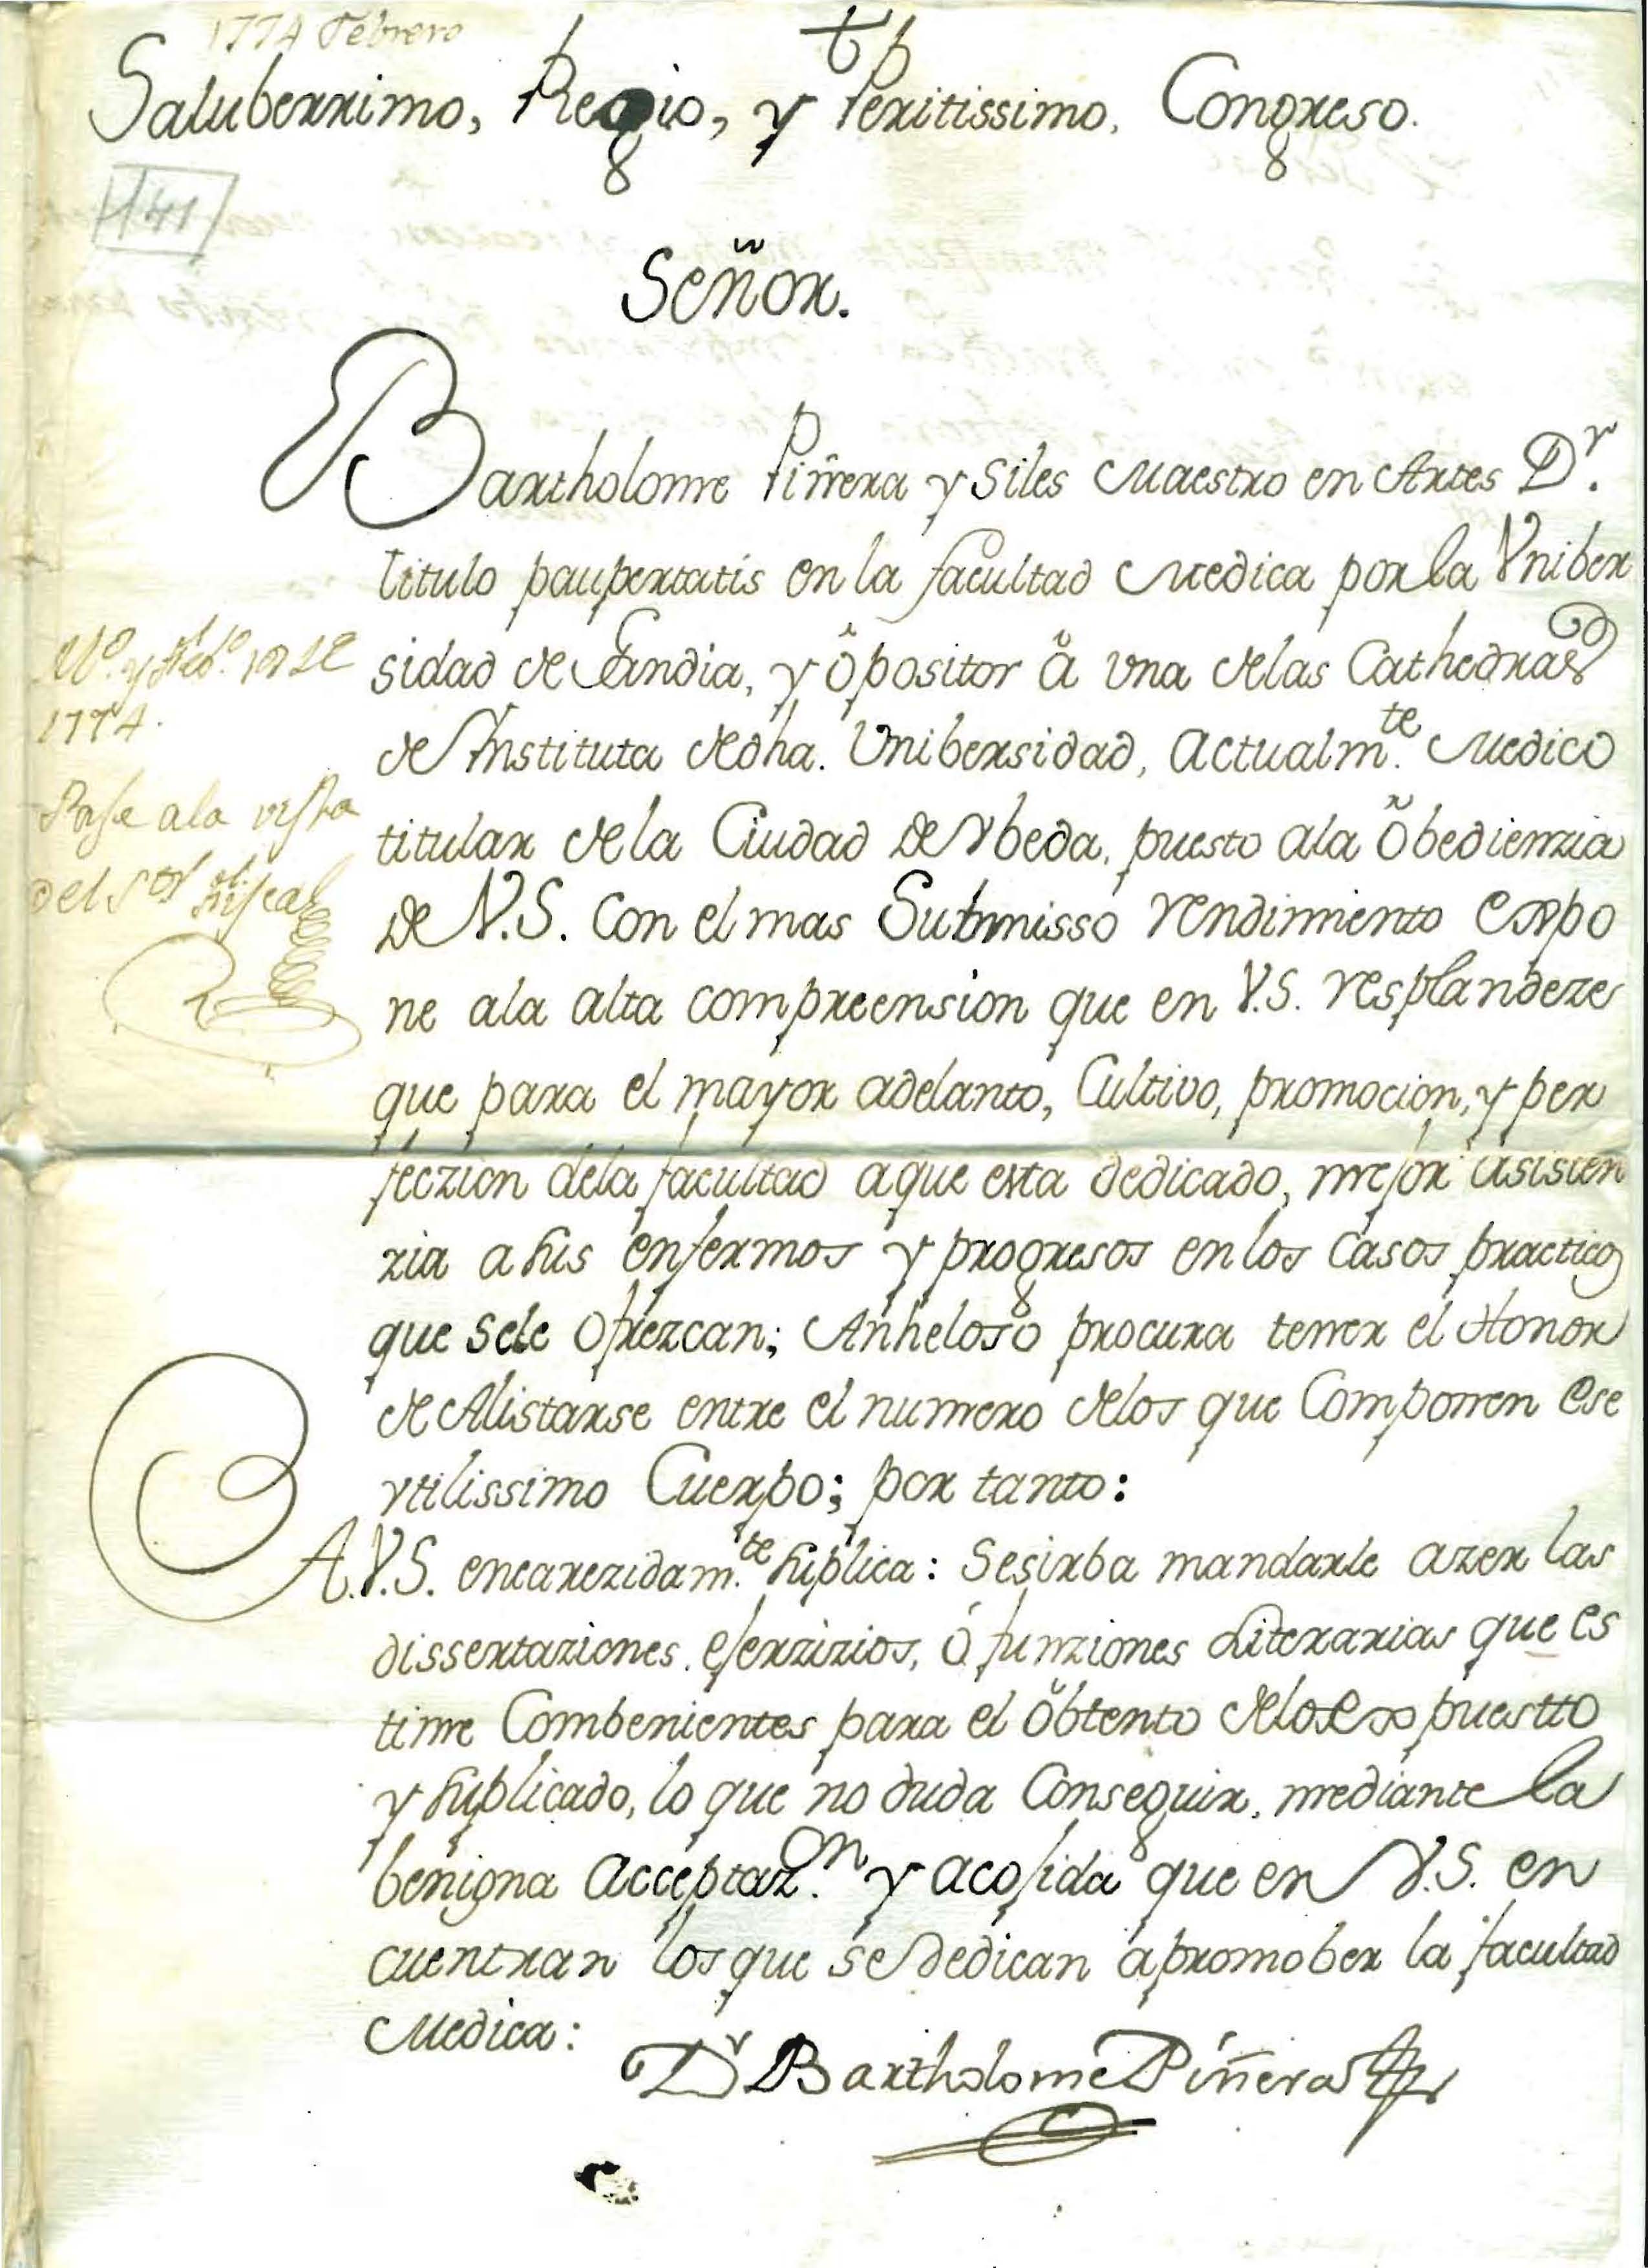 1774 Febrero
Saluberrimo, Regio, y Peritissimo, Congreso.
141
Señor.
Bartholome Piñera y Siles Maestro en Artes Dr.
titulo paupertatis en la facultad Medica por la Vniber
sidad de Gandia, y ôpositor â una delas Cathedras
de Instituta dedha. Unibersidad, Actualmte. Medico
titular dela Ciudad de Vbeda, puesto ala Obedienzia
de V.S. Con el mas Submisso rendimiento Expo
ne ala alta compreension que en V.S. resplandeze
que para el mayor adelanto, Cultivo, promocion, y per
feczion dela facultad aque esta dedicado, mejor asisten
zia a sus enfermos y progresos en los Casos practicos
que sele Ofrezcan; Anheloso procura tener el Honor
de Alistarse entre el numero delos que Componen Ese
vtilissimo Cuerpo; por tanto:
A.V.S. encarezidamte. suplica: Sesirba mandarle azer las
dissertaziones, ejerzizios, ó funziones Literarias que es
time Combenientes para el ôbtento delo Expuestto
y suplicado, lo que no duda Conseguir, mediante la
benigna Acceptazon. y acojida que en V.S. en
cuentran los que se Dedican apromober la facultad
Medica:
Dr Bartholome Piñera
Md. y Febo. 19 de
1774.
Pase ala vista
del Sor Fiscal